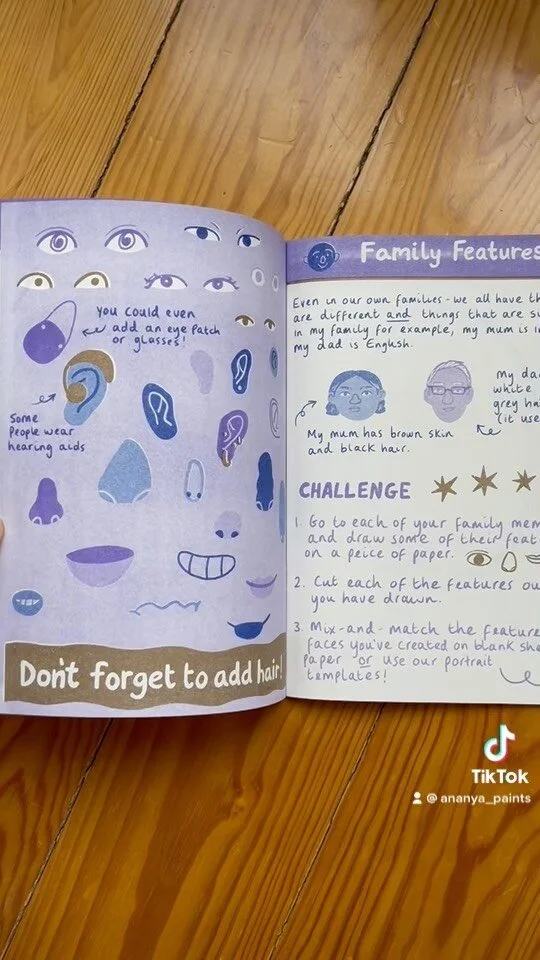 You could even
add an eye patch
or glasses!
Some
People wear
hearing aids
Don't forget to add hair!
Family Features
Even in our own families - we all have th
are different and things that are su
in my family for example, my mum is in
my dad is English.
My da
white
grey ha
(it use
My mum has brown skin
and black hair.
CHALLENGE
1. Go to each of your family mem
and draw some of their feat
on a peice of paper.
2. Cut each of the features ou
you have drawn.
3. Mix-and-match the feature
faces you've created on blank she
paper or use our portrait
templates!
TikTok
@ananya_paints